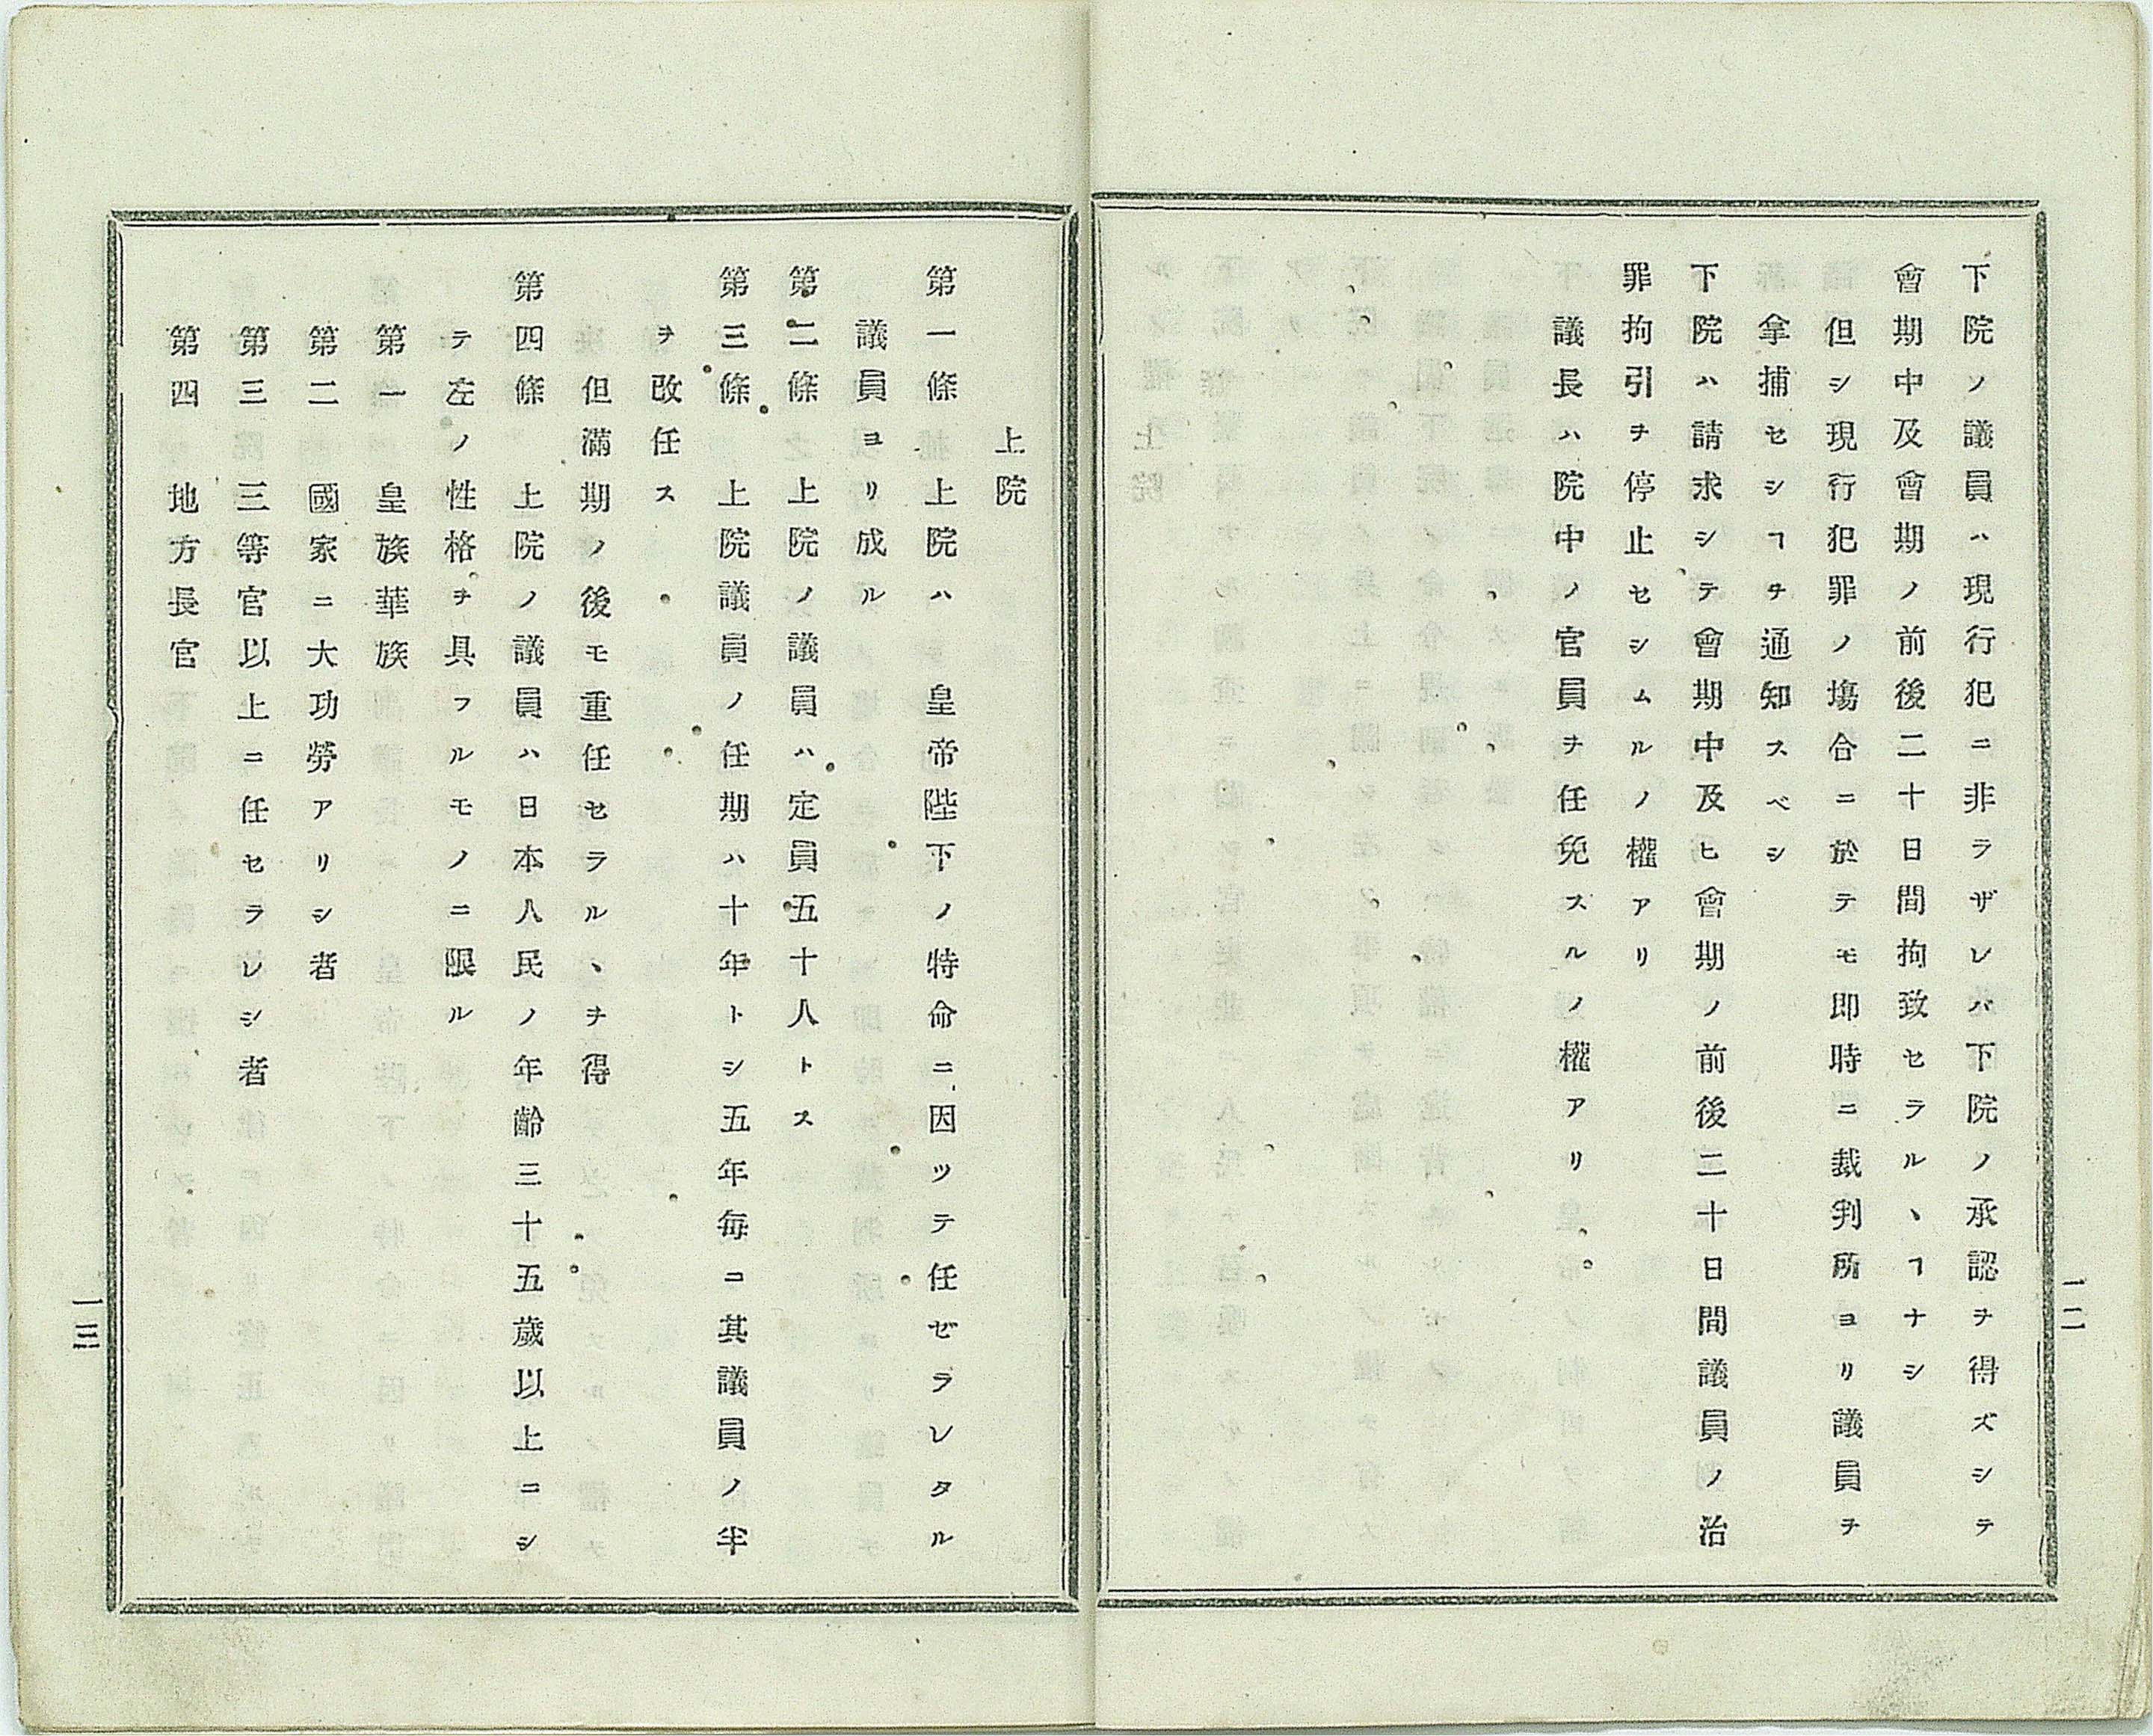 下院ノ議員ハ現行犯ニ非ラザレハ下院ノ承認ヲ得ズシテ
會期中及會期ノ前後二十日間拘致セラルヽヿナシ
但シ現行犯罪ノ塲合ニ於テモ即時ニ裁判所ヨリ議員ヲ
拿捕セシヿヲ通知スベシ
下院ハ請求シテ會期中及ヒ會期ノ前後二十日間議員ノ治
罪拘引ヲ停止セシムルノ權アリ
議長ハ院中ノ官員ヲ任免スルノ權アリ
一二
上院
第一條 上院ハ 皇帝陛下ノ特命ニ因ツテ任ゼラレタル
議員ヨリ成ル
第二條 上院ノ議員ハ定員五十人トス
第三條 上院議員ノ任期ハ十年トシ五年毎コ其議員ノ半
ヲ改任ス
但滿期ノ後モ重任セラルヽヲ得
第四條 上院ノ議員ハ日本人民ノ年齡三十五歲以上ニシ
テ左ノ性格ヲ具フルモノニ限ル
第一 皇族華族
第二 國家ニ大功勞アリシ者
第三 三等官以上ニ任セラレシ者
第四 地方長官
一三